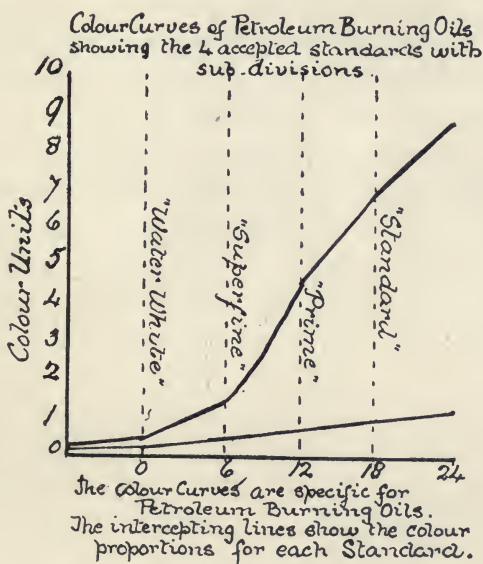 Colour Curves of Petroleum Burning Oils
showing the 4 accepted standards with
sub-divisions.
10
9
8
7
6
5
4
3
2
1
0
Colour Units
"Water White"
"Superfine"
"Prime"
"Standard"
0 6 12 18 24
The colour Curves are specific for
Petroleum Burning Oils.
The intercepting lines show the colour
proportions for each Standard.